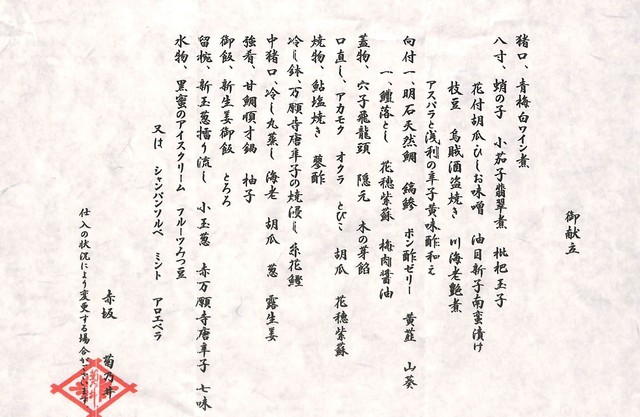 御献立
猪口、青梅白ワイン煮
八寸、蛸の子 小茄子翡翠煮 枇杷玉子
花付胡瓜ひしお味噌 油目新子南蛮漬け
枝豆 烏賊酒盗焼き 川海老艶煮
アスパラと浅利の辛子黄味酢和え
向付一、明石天然鯛 縞鯵 ポン酢ゼリー 黄韮 山葵
一、鱧落とし 花穂紫蘇 梅肉醤油
蓋物、穴子飛龍頭 隠元 木の芽餡
口直し、アカモク オクラ とびこ 胡瓜 花穂紫蘇
焼物、鮎塩焼き 蓼酢
冷し鉢、万願寺唐辛子の焼浸し 糸花鰹
中猪口、冷し丸蒸し 海老 胡瓜 葱 露生姜
強肴、甘鯛順才鍋 柚子
御飯、新生姜御飯 とろろ
留椀、新玉葱擂り流し 小玉葱 赤万願寺唐辛子 七味
水物、黒蜜のアイスクリーム フルーツみつ豆
又は シャンパンソルベ ミント アロエベラ
赤坂 菊乃井
仕入の状況により変更する場合がございます